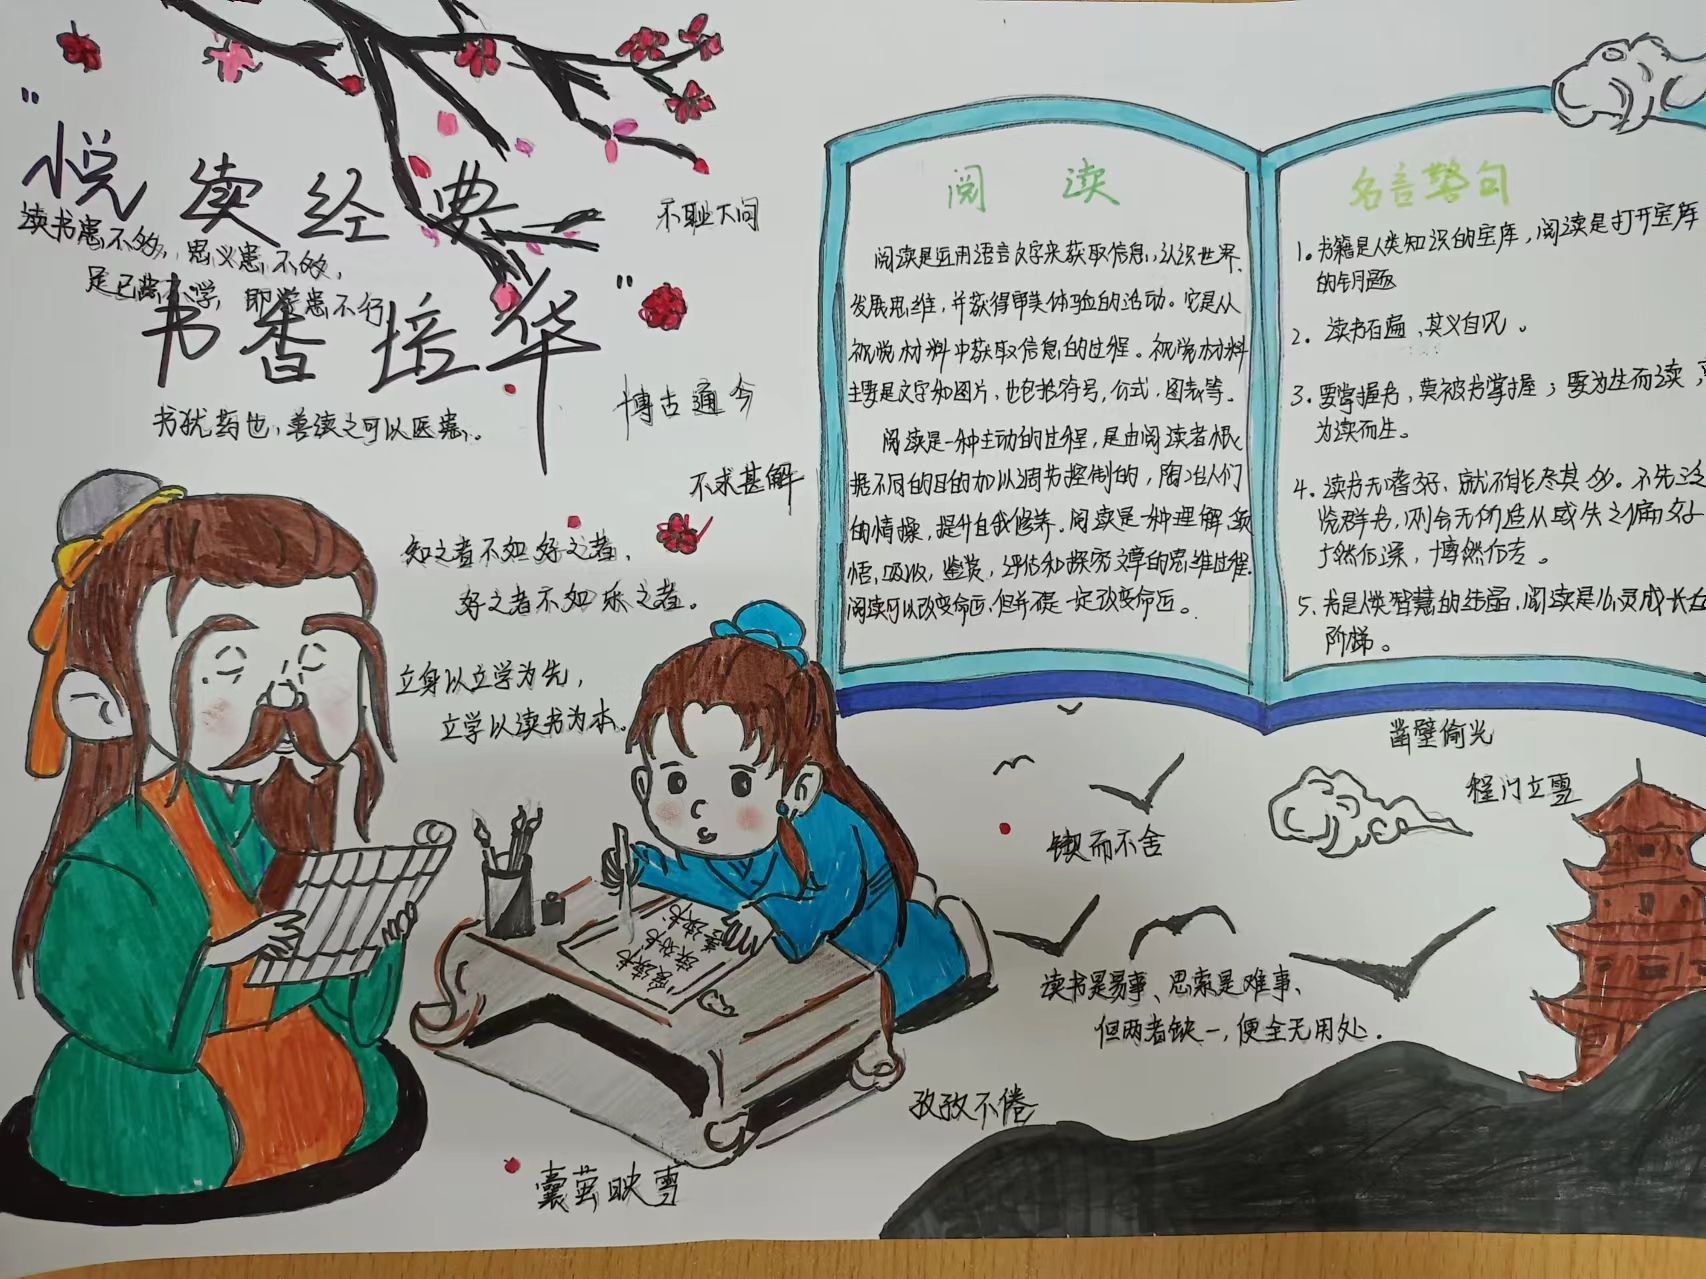 "悦读经典
书香培华"
读书患不多,思义患不明,
足已患不学,即学患不行
书犹药也,善读之可以医愚。
不耻下问
博古通今
不求甚解
知之者不如好之者,
好之者不如乐之者。
立身以立学为先,
立学以读书为本。
阅 读
阅读是运用语言文字来获取信息,认识世界,
发展思维,并获得审美体验的活动。它是从
视觉材料中获取信息的过程。视觉材料
主要是文字和图片,也包括符号,公式,图表等。
阅读是一种主动的过程,是由阅读者根
据不同的目的加以调节控制的,陶冶人们
的情操,提升自我修养。阅读是一种理解,领
悟,吸收,鉴赏,评估和探究文章的思维过程。
阅读可以改变命运,但并不是一定改变命运。
名言警句
1.书籍是人类知识的宝库,阅读是打开宝库
的钥匙
2. 读书百遍,其义自见。
3.要掌握书,莫被书掌握;要为生而读,
为读而生。
4.读书无嗜好,就不能尽其多。不先泛
览群书,则会无所适从或失之偏好
广然后深,博然后专。
5.书是人类智慧的结晶,阅读是心灵成长
阶梯。
凿壁偷光
程门立雪
锲而不舍
爱读书
读好书
善读书
读书是易事、思索是难事、
但两者缺一,便全无用处.
孜孜不倦
囊萤映雪